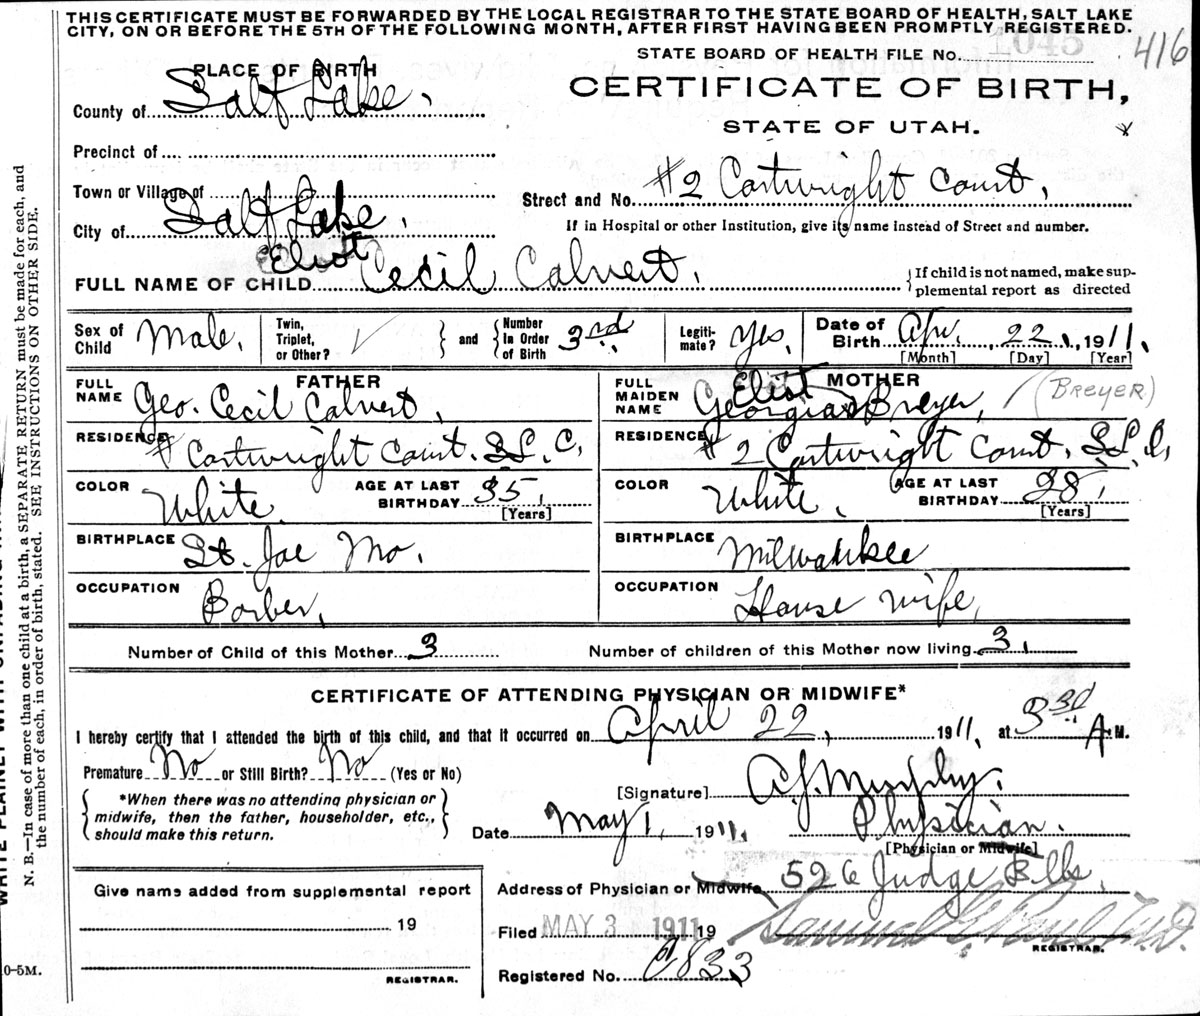 THIS CERTIFICATE MUST BE FORWARDED BY THE LOCAL REGISTRAR TO THE STATE BOARD OF HEALTH, SALT LAKE
CITY, ON OR BEFORE THE 5TH OF THE FOLLOWING MONTH, AFTER FIRST HAVING BEEN PROMPTLY REGISTERED.
STATE BOARD OF HEALTH FILE No. 1045
416
PLACE OF BIRTH
CERTIFICATE OF BIRTH,
County of Salt Lake.
STATE OF UTAH.
Precinct of
Town or Village of
Street and No. #2 Cartwright Court.
City of Salt Lake.
If in Hospital or other Institution, give its name instead of Street and number.
FULL NAME OF CHILD Eliot Cecil Calvert.
If child is not named, make sup-
plemental report as directed
Sex of Child Male.
Twin, Triplet, or Other?
and
Number In Order of Birth 3rd
Legiti-mate? Yes.
Date of Birth Apr. 22, 1911.
[Month] [Day] [Year]
FATHER
FULL NAME Geo. Cecil Calvert,
RESIDENCE # Cartwright Court. S.L.C.
COLOR White.
AGE AT LAST BIRTHDAY 35,
[Years]
BIRTHPLACE St. Joe Mo.
OCCUPATION Barber,
MOTHER
FULL MAIDEN NAME Georgia Eliot Breyer, (BREYER)
RESIDENCE #2 Cartwright Court, S.L.C,
COLOR White.
AGE AT LAST BIRTHDAY 28,
[Years]
BIRTHPLACE Milwaukee
OCCUPATION House wife,
Number of Child of this Mother 3
Number of children of this Mother now living 3,
CERTIFICATE OF ATTENDING PHYSICIAN OR MIDWIFE*
I hereby certify that I attended the birth of this child, and that it occurred on April 22, 1911, at 3 30 A.M.
Premature No or Still Birth? No (Yes or No)
[Signature] A.J. Murphy.
*When there was no attending physician or
midwife, then the father, householder, etc.,
should make this return.
Date May 1, 1911.
Physician.
[Physician or Midwife]
Address of Physician or Midwife 526 Judge Bldg.
Give name added from supplemental report
19
REGISTRAR.
Filed MAY 3 1911 19
Samuel G. Paul M.D.
REGISTRAR.
Registered No. 0833
N. B.—In case of more than one child at a birth, a SEPARATE RETURN must be made for each, and
the number of each, in order of birth, stated. SEE INSTRUCTIONS ON OTHER SIDE.
0-5M.